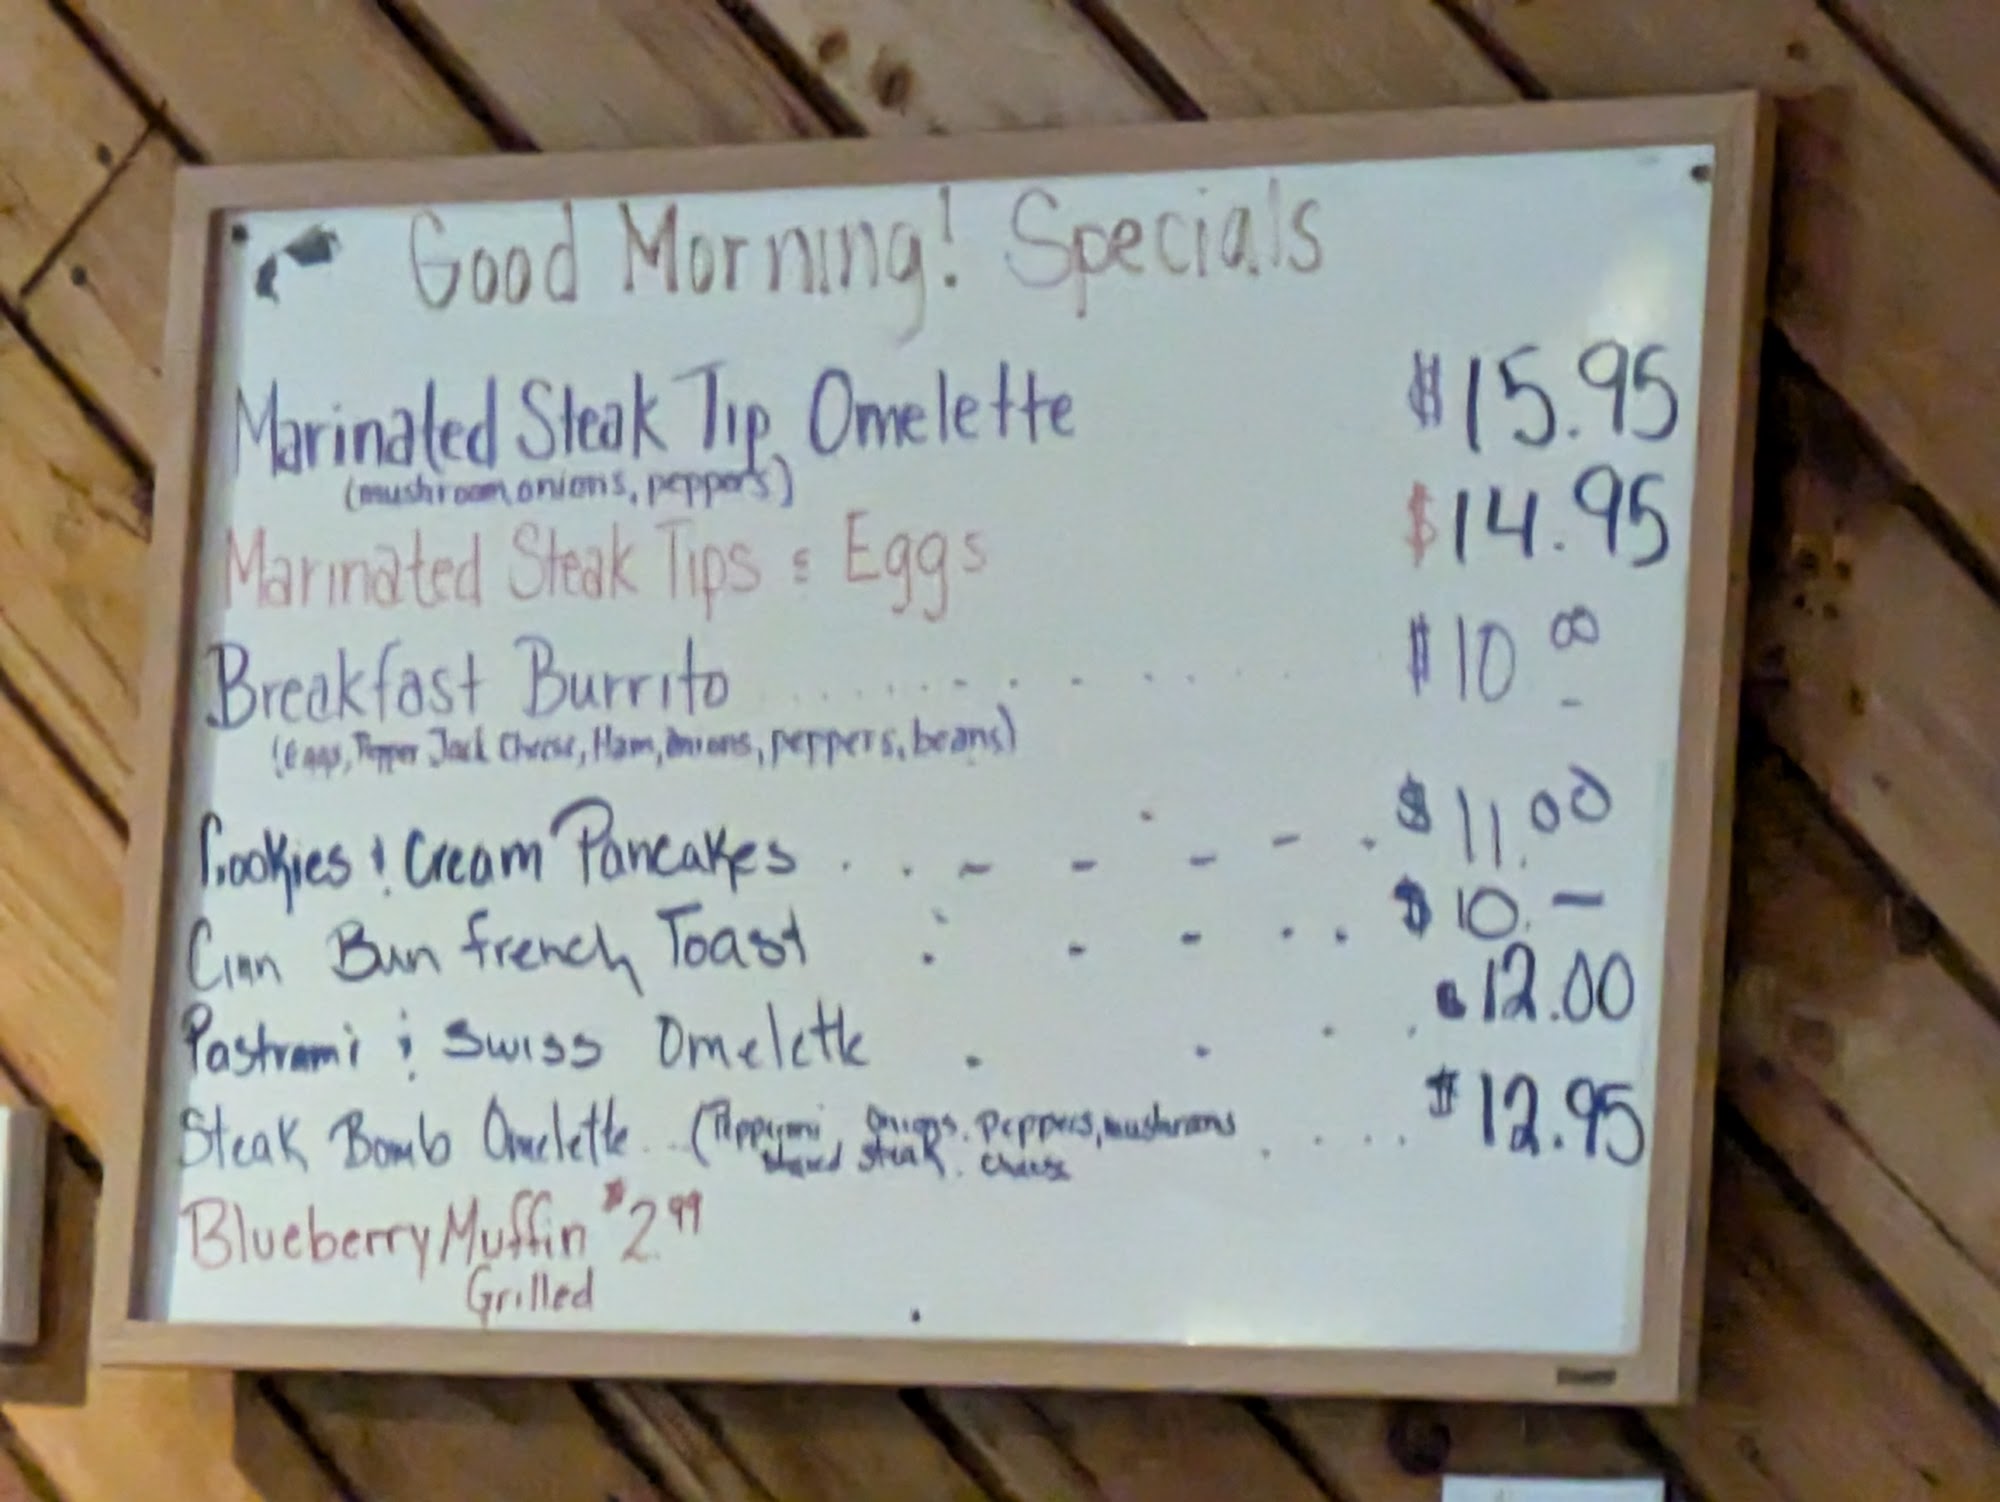 Good Morning! Specials
Marinated Steak Tip Omelette $15.95
(mushroom, onions, peppers)
Marinated Steak Tips & Eggs $14.95
Breakfast Burrito .......... $10 00
(Eggs, Pepper Jack Cheese, Ham, onions, peppers, beans)
Cookies & Cream Pancakes . . - - - - . $11.00
Cinn Bun french Toast . - - . . $10.-
Pastrami & Swiss Omelette . . . . 12.00
Steak Bomb Omelette (Pepperoni, onions, peppers, mushrooms .... $12.95
shaved steak. cheese
Blueberry Muffin $2.99
Grilled